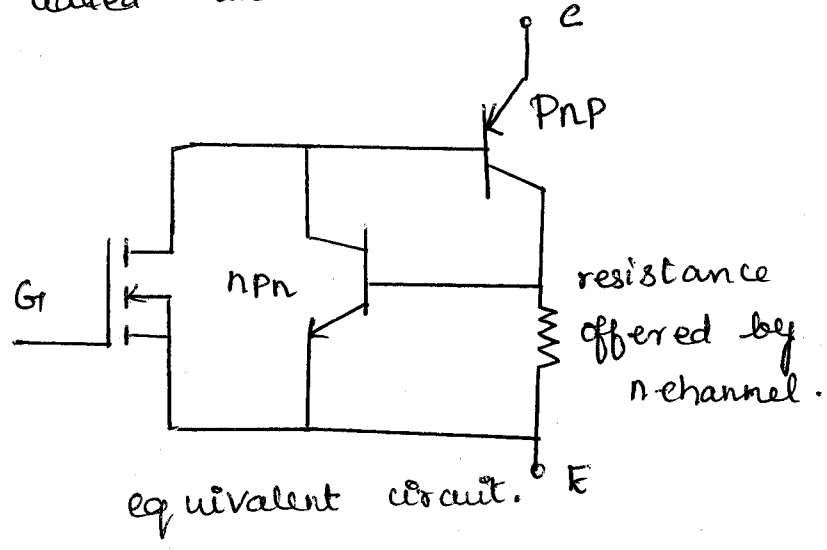 C
PnP
G
nPn
resistance
offered by
n-channel.
E
equivalent circuit.